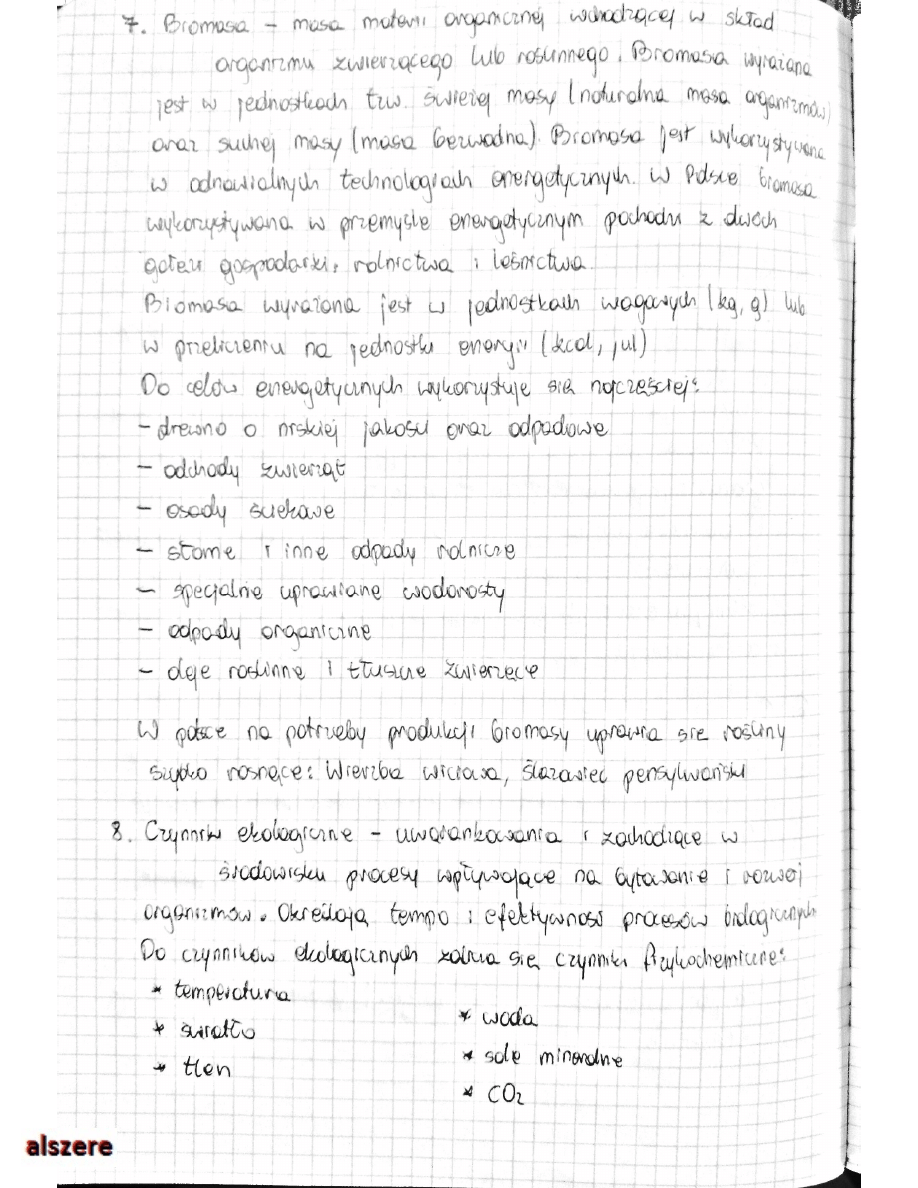 7. Biomasa – masa materii organicznej wchodzącej w skład
organizmu zwierzęcego lub roślinnego. Biomasa wyrażana
jest w jednostkach tzw. świeżej masy (naturalna masa organizmów)
oraz suchej masy (masa bezwodna). Biomasa jest wykorzystywana
w odnawialnych technologiach energetycznych. W Polsce biomasa
wykorzystywana w przemyśle energetycznym pochodzi z dwóch
gałęzi gospodarki: rolnictwa i leśnictwa.
Biomasa wyrażana jest w jednostkach wagowych (kg, g) lub
w przeliczeniu na jednostki energii (kcal, jul)
Do celów energetycznych wykorzystuje się najczęściej:
– drewno o niskiej jakości oraz odpadowe
– odchody zwierząt
– osady ściekowe
– słomę i inne odpady rolnicze
– specjalnie uprawiane wodorosty
– odpady organiczne
– oleje roślinne i tłuszcze zwierzęce
W polsce na potrzeby produkcji biomasy uprawia się rośliny
szybko rosnące: Wierzba wiciowa, ślazowiec pensylwański
8. Czynniki ekologiczne – uwarunkowania i zachodzące w
środowisku procesy wpływające na bytowanie i rozwój
organizmów. Określają tempo i efektywność procesów biologicznych
Do czynników ekologicznych zalicza się czynniki fizykochemiczne:
* temperatura
* światło
* tlen
* woda
* sole mineralne
* CO2
alszere